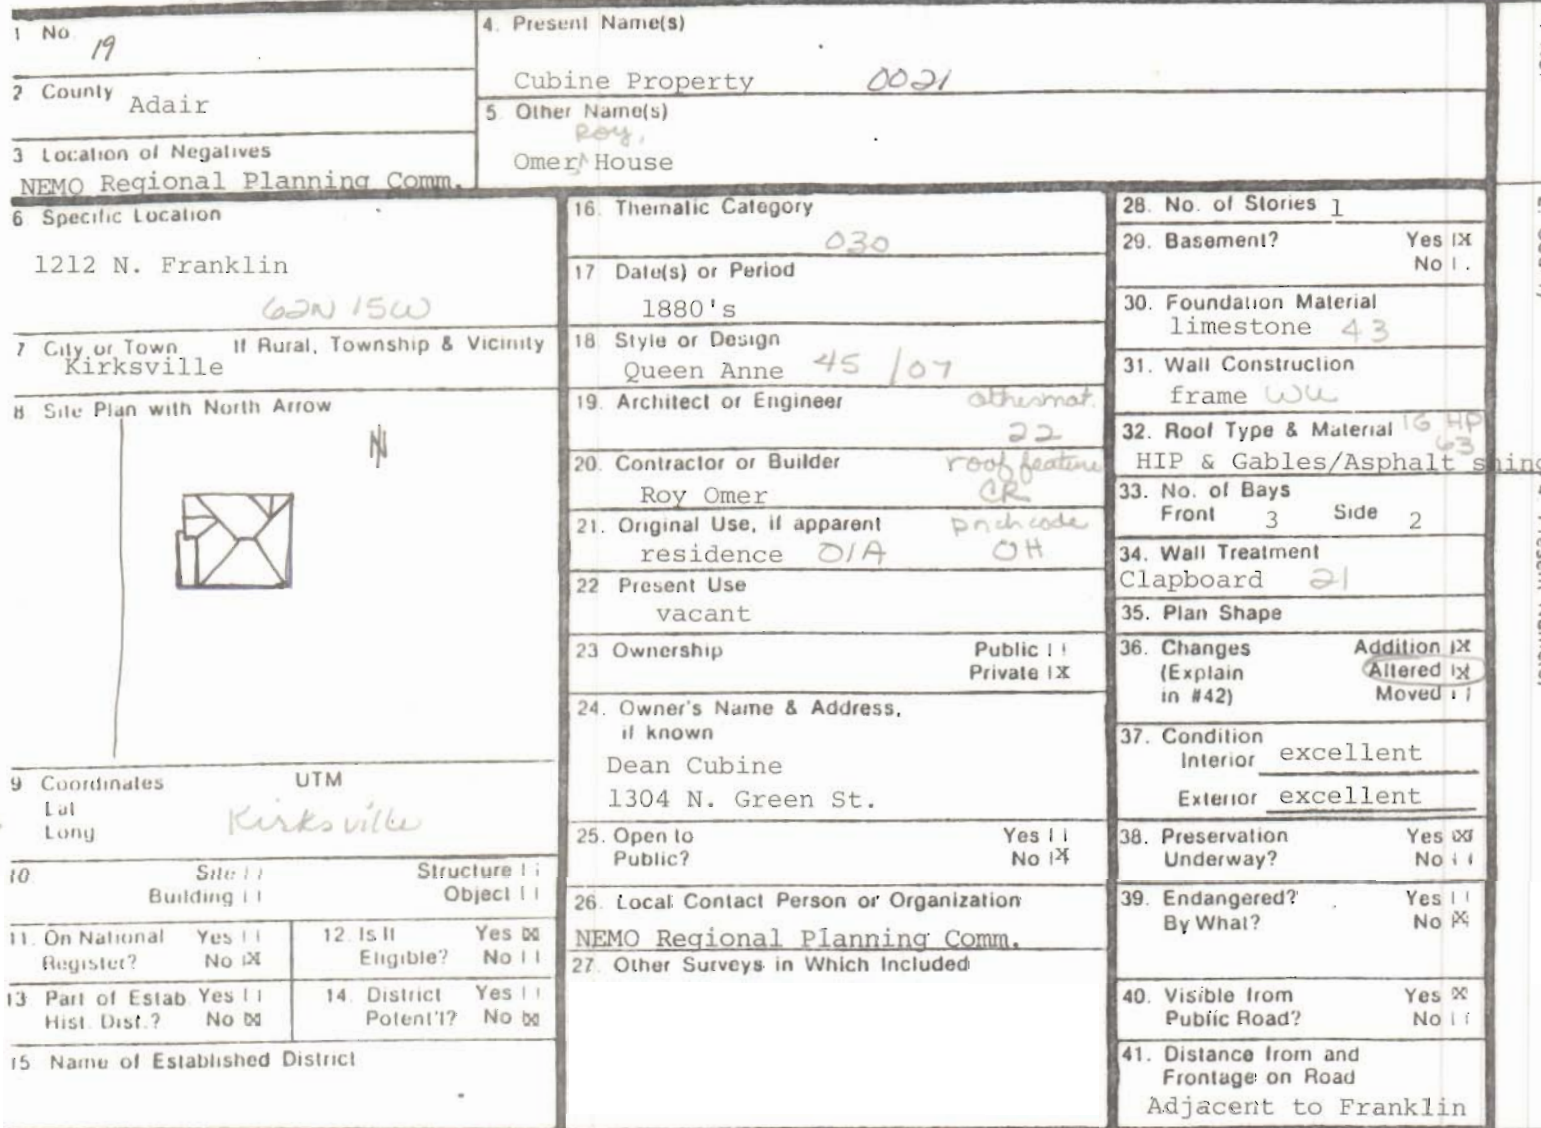 1 No.
19
2 County Adair
3 Location of Negatives
NEMO Regional Planning Comm.
4. Present Name(s)
Cubine Property 0021
5 Other Name(s)
Roy,
Omer^ House
6 Specific Location
1212 N. Franklin
62N 15W
7 City or Town If Rural, Township & Vicinity
Kirksville
8 Site Plan with North Arrow
N
9 Coordinates UTM
Lat
Long
Kirksville
10 Site Structure
Building Object
11. On National Yes
Register? No X
12. Is It Yes X
Eligible? No
13 Part of Estab Yes
Hist. Dist.? No X
14. District Yes
Potent'l? No X
15 Name of Established District
16. Thematic Category
030
17 Date(s) or Period
1880's
18 Style or Design
Queen Anne 45 /07
19. Architect or Engineer
22
20. Contractor or Builder roof feature
Roy Omer CR
21. Original Use, if apparent porch code
residence 01A OH
22 Present Use
vacant
23 Ownership Public
Private X
24. Owner's Name & Address,
if known
Dean Cubine
1304 N. Green St.
25. Open to Yes
Public? No X
26. Local Contact Person or Organization
NEMO Regional Planning Comm.
27 Other Surveys in Which Included
28. No. of Stories 1
29. Basement? Yes X
No
30. Foundation Material
limestone 43
31. Wall Construction
frame WU
32. Roof Type & Material 16 HP
63
HIP & Gables/Asphalt shing
33. No. of Bays
Front 3 Side 2
34. Wall Treatment
Clapboard 21
35. Plan Shape
36. Changes Addition X
(Explain Altered X
in #42) Moved
37. Condition
Interior excellent
Exterior excellent
38. Preservation Yes X
Underway? No
39. Endangered? Yes
By What? No X
40. Visible from Yes X
Public Road? No
41. Distance from and
Frontage on Road
Adjacent to Franklin